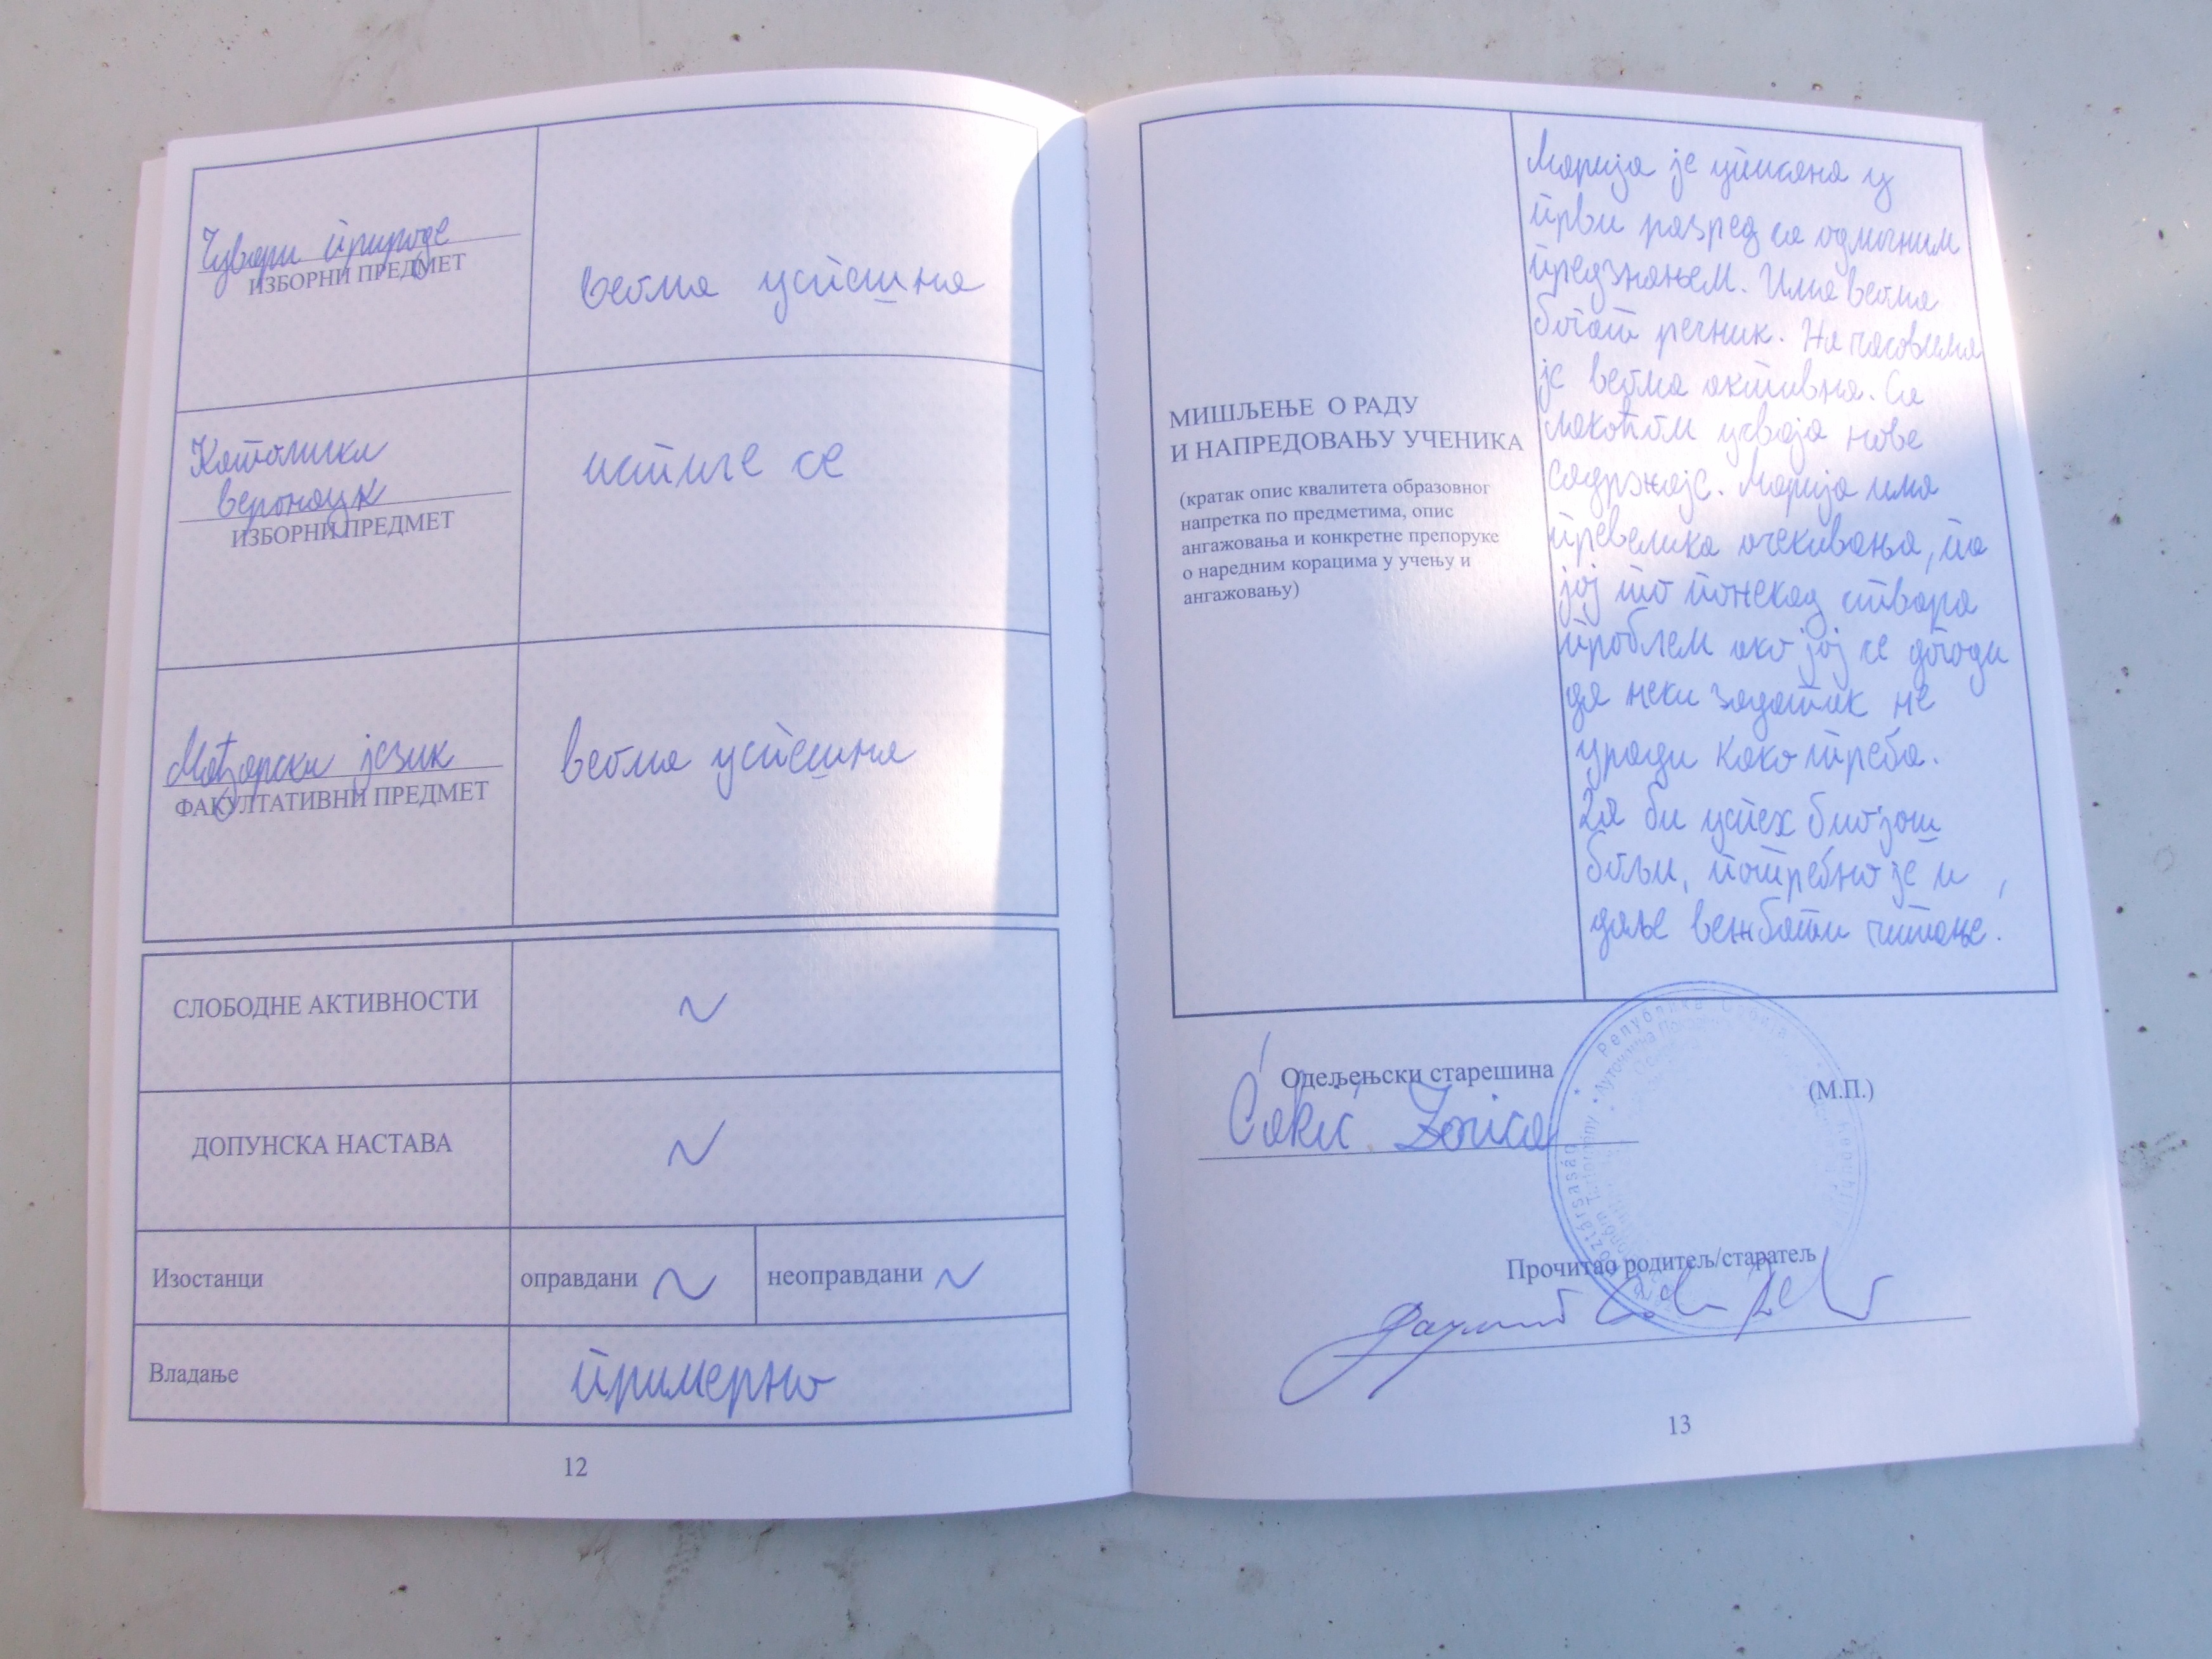 Чувари природе
ИЗБОРНИ ПРЕДМЕТ
веома успешна
Католички
вјеронаук
ИЗБОРНИ ПРЕДМЕТ
истиче се
Мађарски језик
ФАКУЛТАТИВНИ ПРЕДМЕТ
веома успешна
СЛОБОДНЕ АКТИВНОСТИ
~
ДОПУНСКА НАСТАВА
~
Изостанци
оправдани ~
неоправдани ~
Владање
примерно
12
МИШЉЕЊЕ О РАДУ
И НАПРЕДОВАЊУ УЧЕНИКА
(кратак опис квалитета образовног
напретка по предметима, опис
ангажовања и конкретне препоруке
о наредним корацима у учењу и
ангажовању)
Марија је уписана у
први разред са одличним
предзнањем. Има веома
богат речник. На часовима
је веома активна. Са
лакоћом усваја нове
садржаје. Марија има
превелика очекивања, па
јој то понекад ствара
проблем ако јој се догоди
да неки задатак не
уради како треба.
Да би успех био још
бољи, потребно је и
даље вежбати читање.
Република Србија
Одељењски старешина
(М.П.)
Sakić Zorica
Прочитао родитељ/старатељ
13